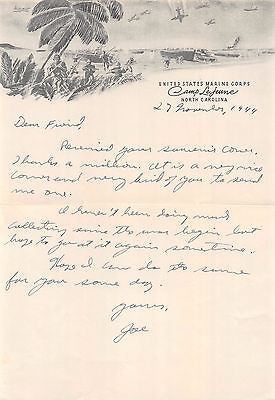 UNITED STATES MARINE CORPS
Camp Lejeune
NORTH CAROLINA
27 November, 1944
Dear Friend,
Received your souvenir cover.
Thanks a million. It is a very nice
cover and very kind of you to send
me one.
I haven't been doing much
collecting since the war began but
hope to go at it again sometime.
Hope I can do the same
for you some day.
Yours,
Joe